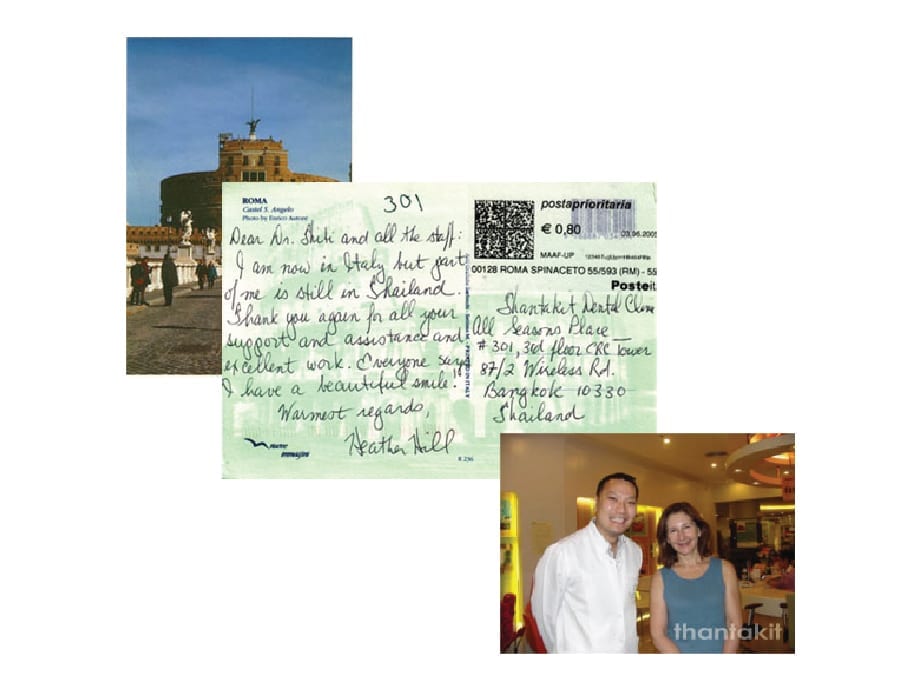 301
ROMA
Castel S. Angelo
Photo by Enrico
Dear Dr. Thiti and all the staff:
I am now in Italy but part
of me is still in Thailand.
Thank you again for all your
support and assistance and
excellent work. Everyone says
I have a beautiful smile!
Warmest regards,
Heather Hill
nuove
immagini
R 236
postaprioritaria
€ 0,80
03.06.2005
MAAF-UP
00128 ROMA SPINACETO 55/593 (RM) - 55
Posteit
Thantakit Dental
All Seasons Place
# 301, 3rd floor CRC Tower
87/2 Wireless Rd.
Bangkok 10330
Thailand
thantakit